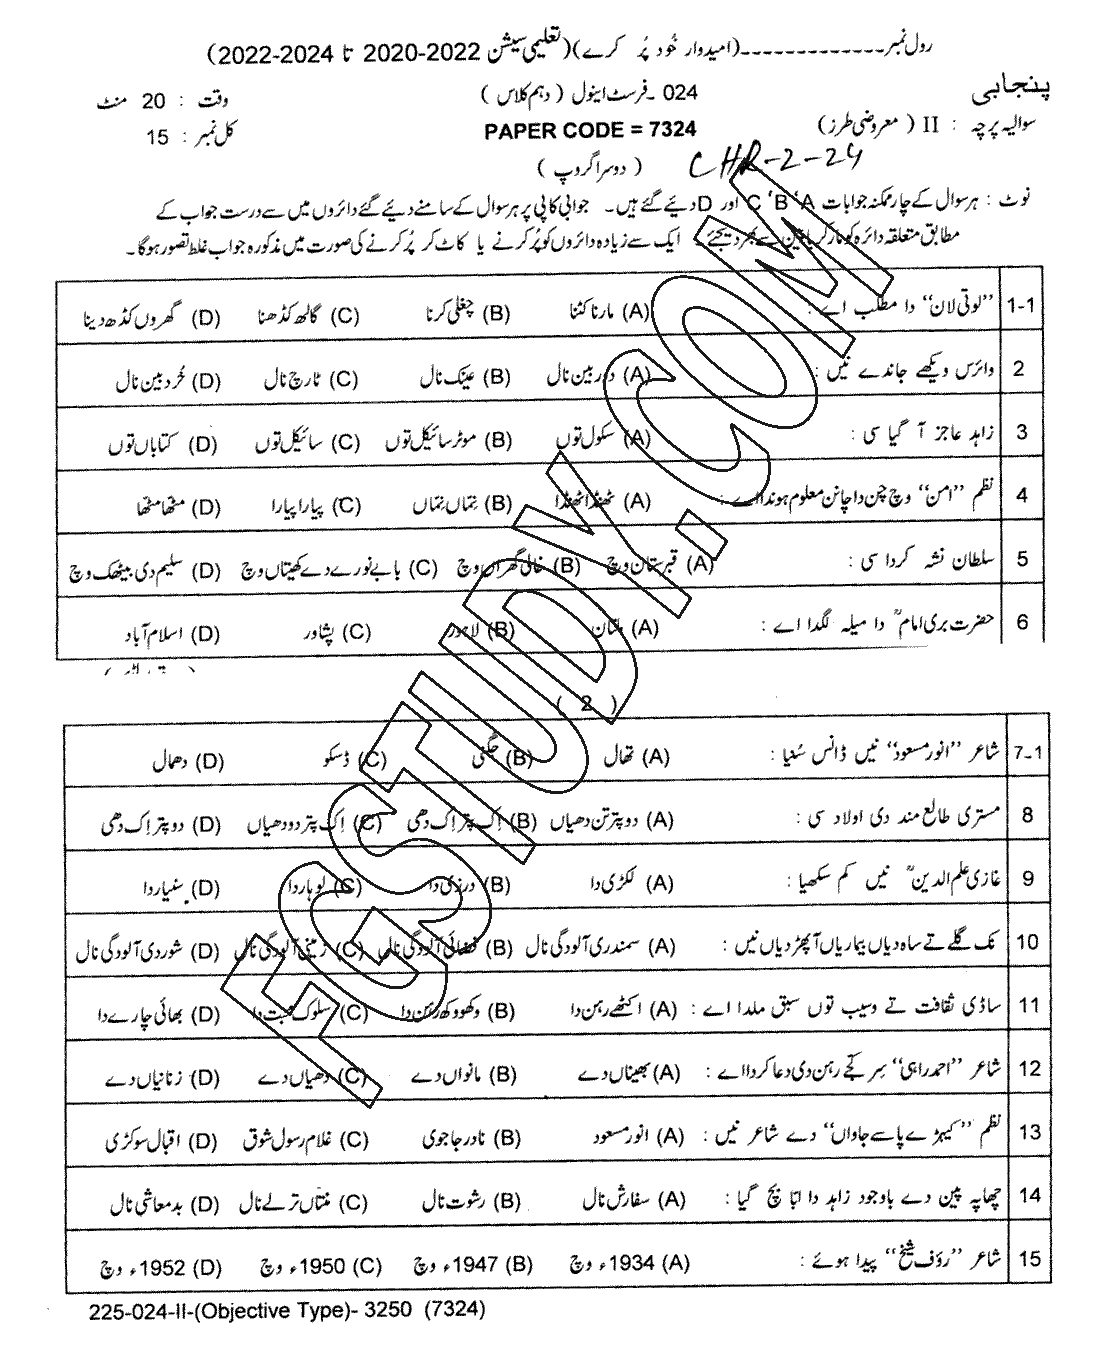 رول نمبر-------------(امیدوار خُود پُر کرے)(تعلیمی سیشن 2022-2020 تا 2024-2022)
پنجابی 024 ۔فرسٹ اینول ( دہم کلاس ) وقت : 20 منٹ
سوالیہ پرچہ : II ( معروضی طرز) PAPER CODE = 7324 کل نمبر : 15
( دوسرا گروپ ) CHR-2-24
نوٹ : ہر سوال کے چار ممکنہ جوابات A ‘B ‘C اور D دیئے گئے ہیں۔ جوابی کاپی پر ہر سوال کے سامنے دیئے گئے دائروں میں سے درست جواب کے
مطابق متعلقہ دائرہ کو مارکر یا پین سے بھر دیجئے۔ ایک سے زیادہ دائروں کو پُر کرنے یا کاٹ کر پُر کرنے کی صورت میں مذکورہ جواب غلط تصور ہوگا۔
1-1 ’’لوتی لان‘‘ دا مطلب اے : (A) مارنا کٹنا (B) چغلی کرنا (C) گالھ کڈھنا (D) گھروں کڈھ دینا
2 وائرس ویکھے جاندے نیں : (A) دوربین نال (B) عینک نال (C) ٹارچ نال (D) خُردبین نال
3 زاہد عاجز آ گیا سی : (A) سکول توں (B) موٹر سائیکل توں (C) سائیکل توں (D) کتاباں توں
4 نظم ’’امن‘‘ وچ چن دا چانن معلوم ہوندا اے : (A) ٹھنڈا ٹھنڈا (B) نِماں نِماں (C) پیارا پیارا (D) مٹھا مٹھا
5 سلطان نشہ کردا سی : (A) قبرستان وچ (B) خالی گھراں وچ (C) بابے نورے دے کھیتاں وچ (D) سلیم دی بیٹھک وچ
6 حضرت بری امامؒ دا میلہ لگدا اے : (A) ملتان (B) لاہور (C) پشاور (D) اسلام آباد
( 2 )
7-1 شاعر ’’انور مسعود‘‘ نیں ڈانس سُنیا : (A) تھال (B) جگنی (C) ڈسکو (D) دھمال
8 مستری طالع مند دی اولاد سی : (A) دو پتر تن دھیاں (B) اِک پتر اِک دھی (C) اِک پتر دو دھیاں (D) دو پتر اِک دھی
9 غازی علم الدینؒ نیں کم سکھیا : (A) لکڑی دا (B) درزی دا (C) لوہار دا (D) سنیار دا
10 نک گلے تے ساہ دیاں بیماریاں آ پھڑدیاں نیں : (A) سمندری آلودگی نال (B) فضائی آلودگی نال (C) زمینی آلودگی نال (D) شور دی آلودگی نال
11 ساڈی ثقافت تے وسیب توں سبق ملدا اے : (A) اکٹھے رہن دا (B) وکھو وکھ رہن دا (C) سلوک محبت دا (D) بھائی چارے دا
12 شاعر ’’احمد راہی‘‘ سِر کجے رہن دی دعا کردا اے : (A) بھیناں دے (B) مانواں دے (C) دھیاں دے (D) زنانیاں دے
13 نظم ’’کیہڑے پاسے جاواں‘‘ دے شاعر نیں : (A) انور مسعود (B) نادر جاجوی (C) غلام رسول شوق (D) اقبال سوکڑی
14 چھاپہ پین دے باوجود زاہد دا ابّا بچ گیا : (A) سفارش نال (B) رشوت نال (C) منتاں ترلے نال (D) بدمعاشی نال
15 شاعر ’’رؤف شیخ‘‘ پیدا ہوئے : (A) 1934ء وچ (B) 1947ء وچ (C) 1950ء وچ (D) 1952ء وچ
225-024-II-(Objective Type)- 3250 (7324)
FGSTUDY.COM